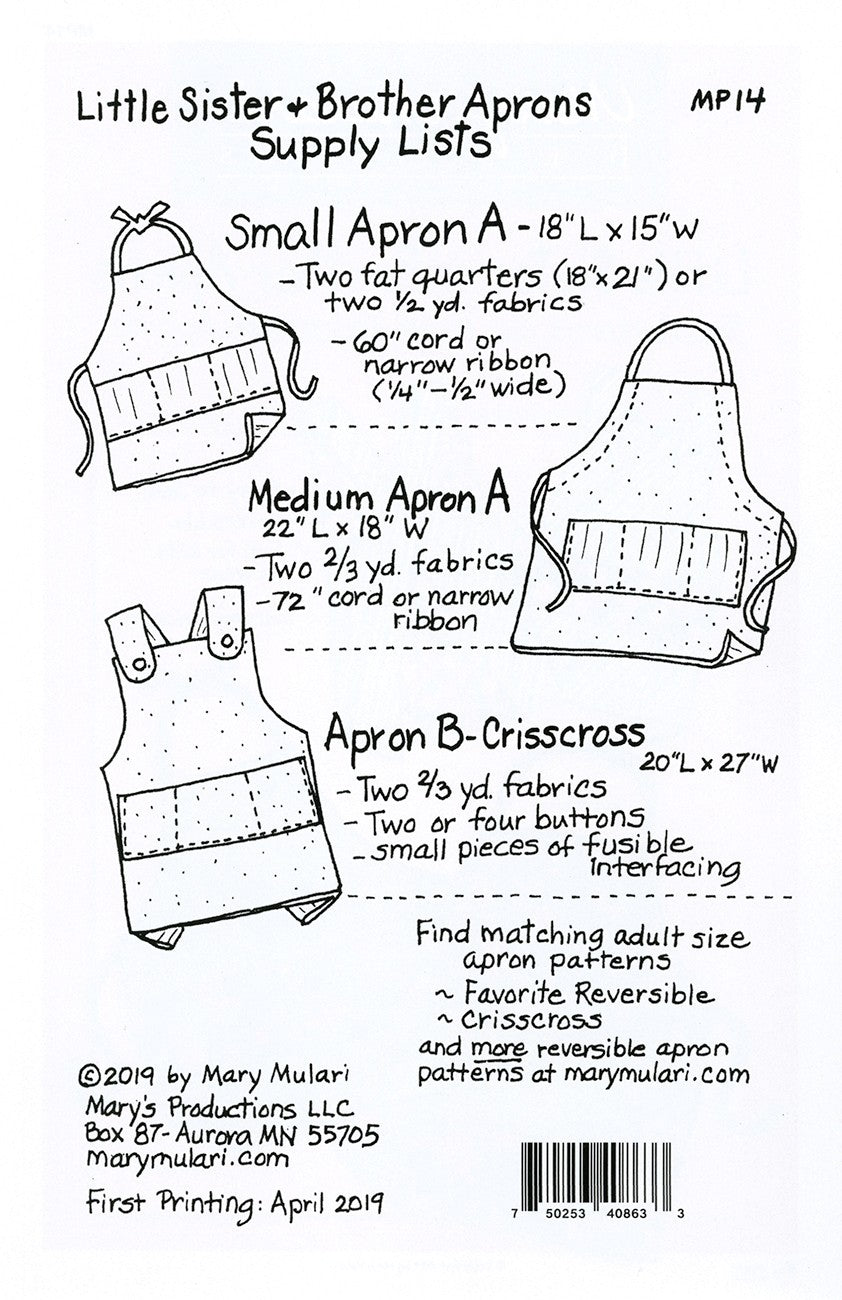 Little Sister & Brother Aprons
MP14
Supply Lists
Small Apron A - 18"L x 15"W
- Two fat quarters (18"x 21") or
two ½ yd. fabrics
- 60" cord or
narrow ribbon
(¼"-½" wide)
Medium Apron A
22" L x 18" W
- Two ⅔ yd. fabrics
- 72" cord or narrow
ribbon
Apron B - Crisscross
20"L x 27"W
- Two ⅔ yd. fabrics
- Two or four buttons
- small pieces of fusible
Interfacing
Find matching adult size
apron patterns
~ Favorite Reversible
~ Crisscross
and more reversible apron
patterns at marymulari.com
©2019 by Mary Mulari
Mary's Productions LLC
Box 87 - Aurora MN 55705
marymulari.com
First Printing: April 2019
7 50253 40863 3